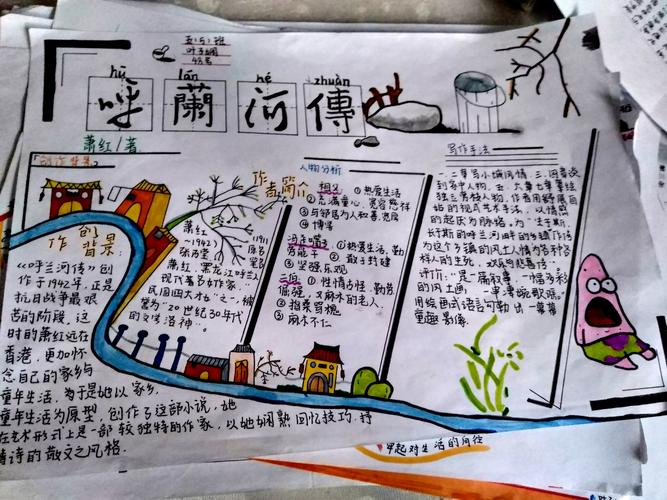 五(5)班
hū lán hé zhuàn
呼蘭河傳
萧红/著
「创作背景」
创作
背景:
《呼兰河传》创
作于1942年,正是
抗日战争最艰
苦的阶段,这
时的萧红远在
香港,更加怀
念自己的家乡与
童年生活,为于是她以家乡、
童年生活为原型,创作了这部小说,她
在艺术形式上是一部较独特的作家,以她娴熟回忆技巧、抒
情诗的散文之风格.
作者简介
萧红(1911
~1942)原名
张迺莹
萧红,黑龙江呼兰人
现代著名女作家,
"民国四大才女"之一,被
誉为"20世纪30年代
的文学洛神"。
人物分析
祖父 ①热爱生活
②充满童心、宽容慈祥
③与邻居为人和善,宽厚
④博学
冯歪嘴子 ①热爱生活,勤
劳能干 ②敢于封建
③坚强乐观
有二伯 ①性情古怪,勤劳
倔强,又麻木的老人
②指桑骂槐
③麻木不仁
写作手法
一、二章写小城风情,三、四章谈
到家中人物,五、六章七章事绘
独立旁枝人物,作者用舒展自
如的现代艺术手法,以情感
的起伏为脉络。为"生于斯、
长于斯"的呼兰河畔的乡镇作传
为这个乡镇的风土人情为各种各
样人的生死、欢乐与悲喜传.
评价:"是一篇叙事诗,一幅多彩
的风土画,一串凄婉歌谣。"
用绘画式语言勾勒出一幕幕
童趣影像.
早起对生活的向往